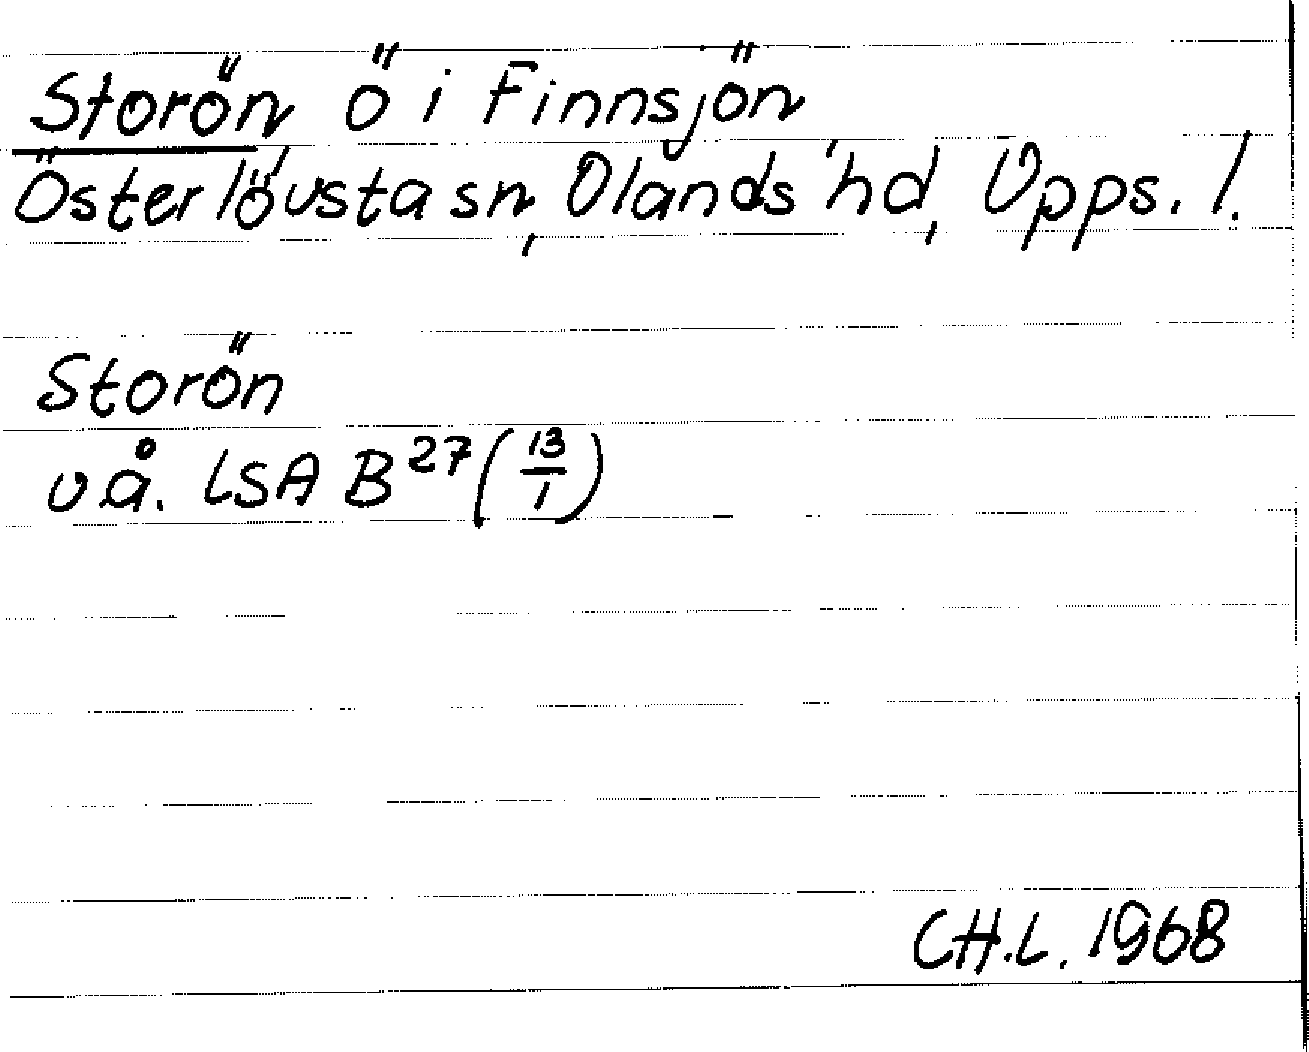 Storön, ö i Finnsjön
Österlövsta sn, Olands hd, Upps. l.
Storön
u å. LSA B²⁷ (13/1)
CH.L. 1968